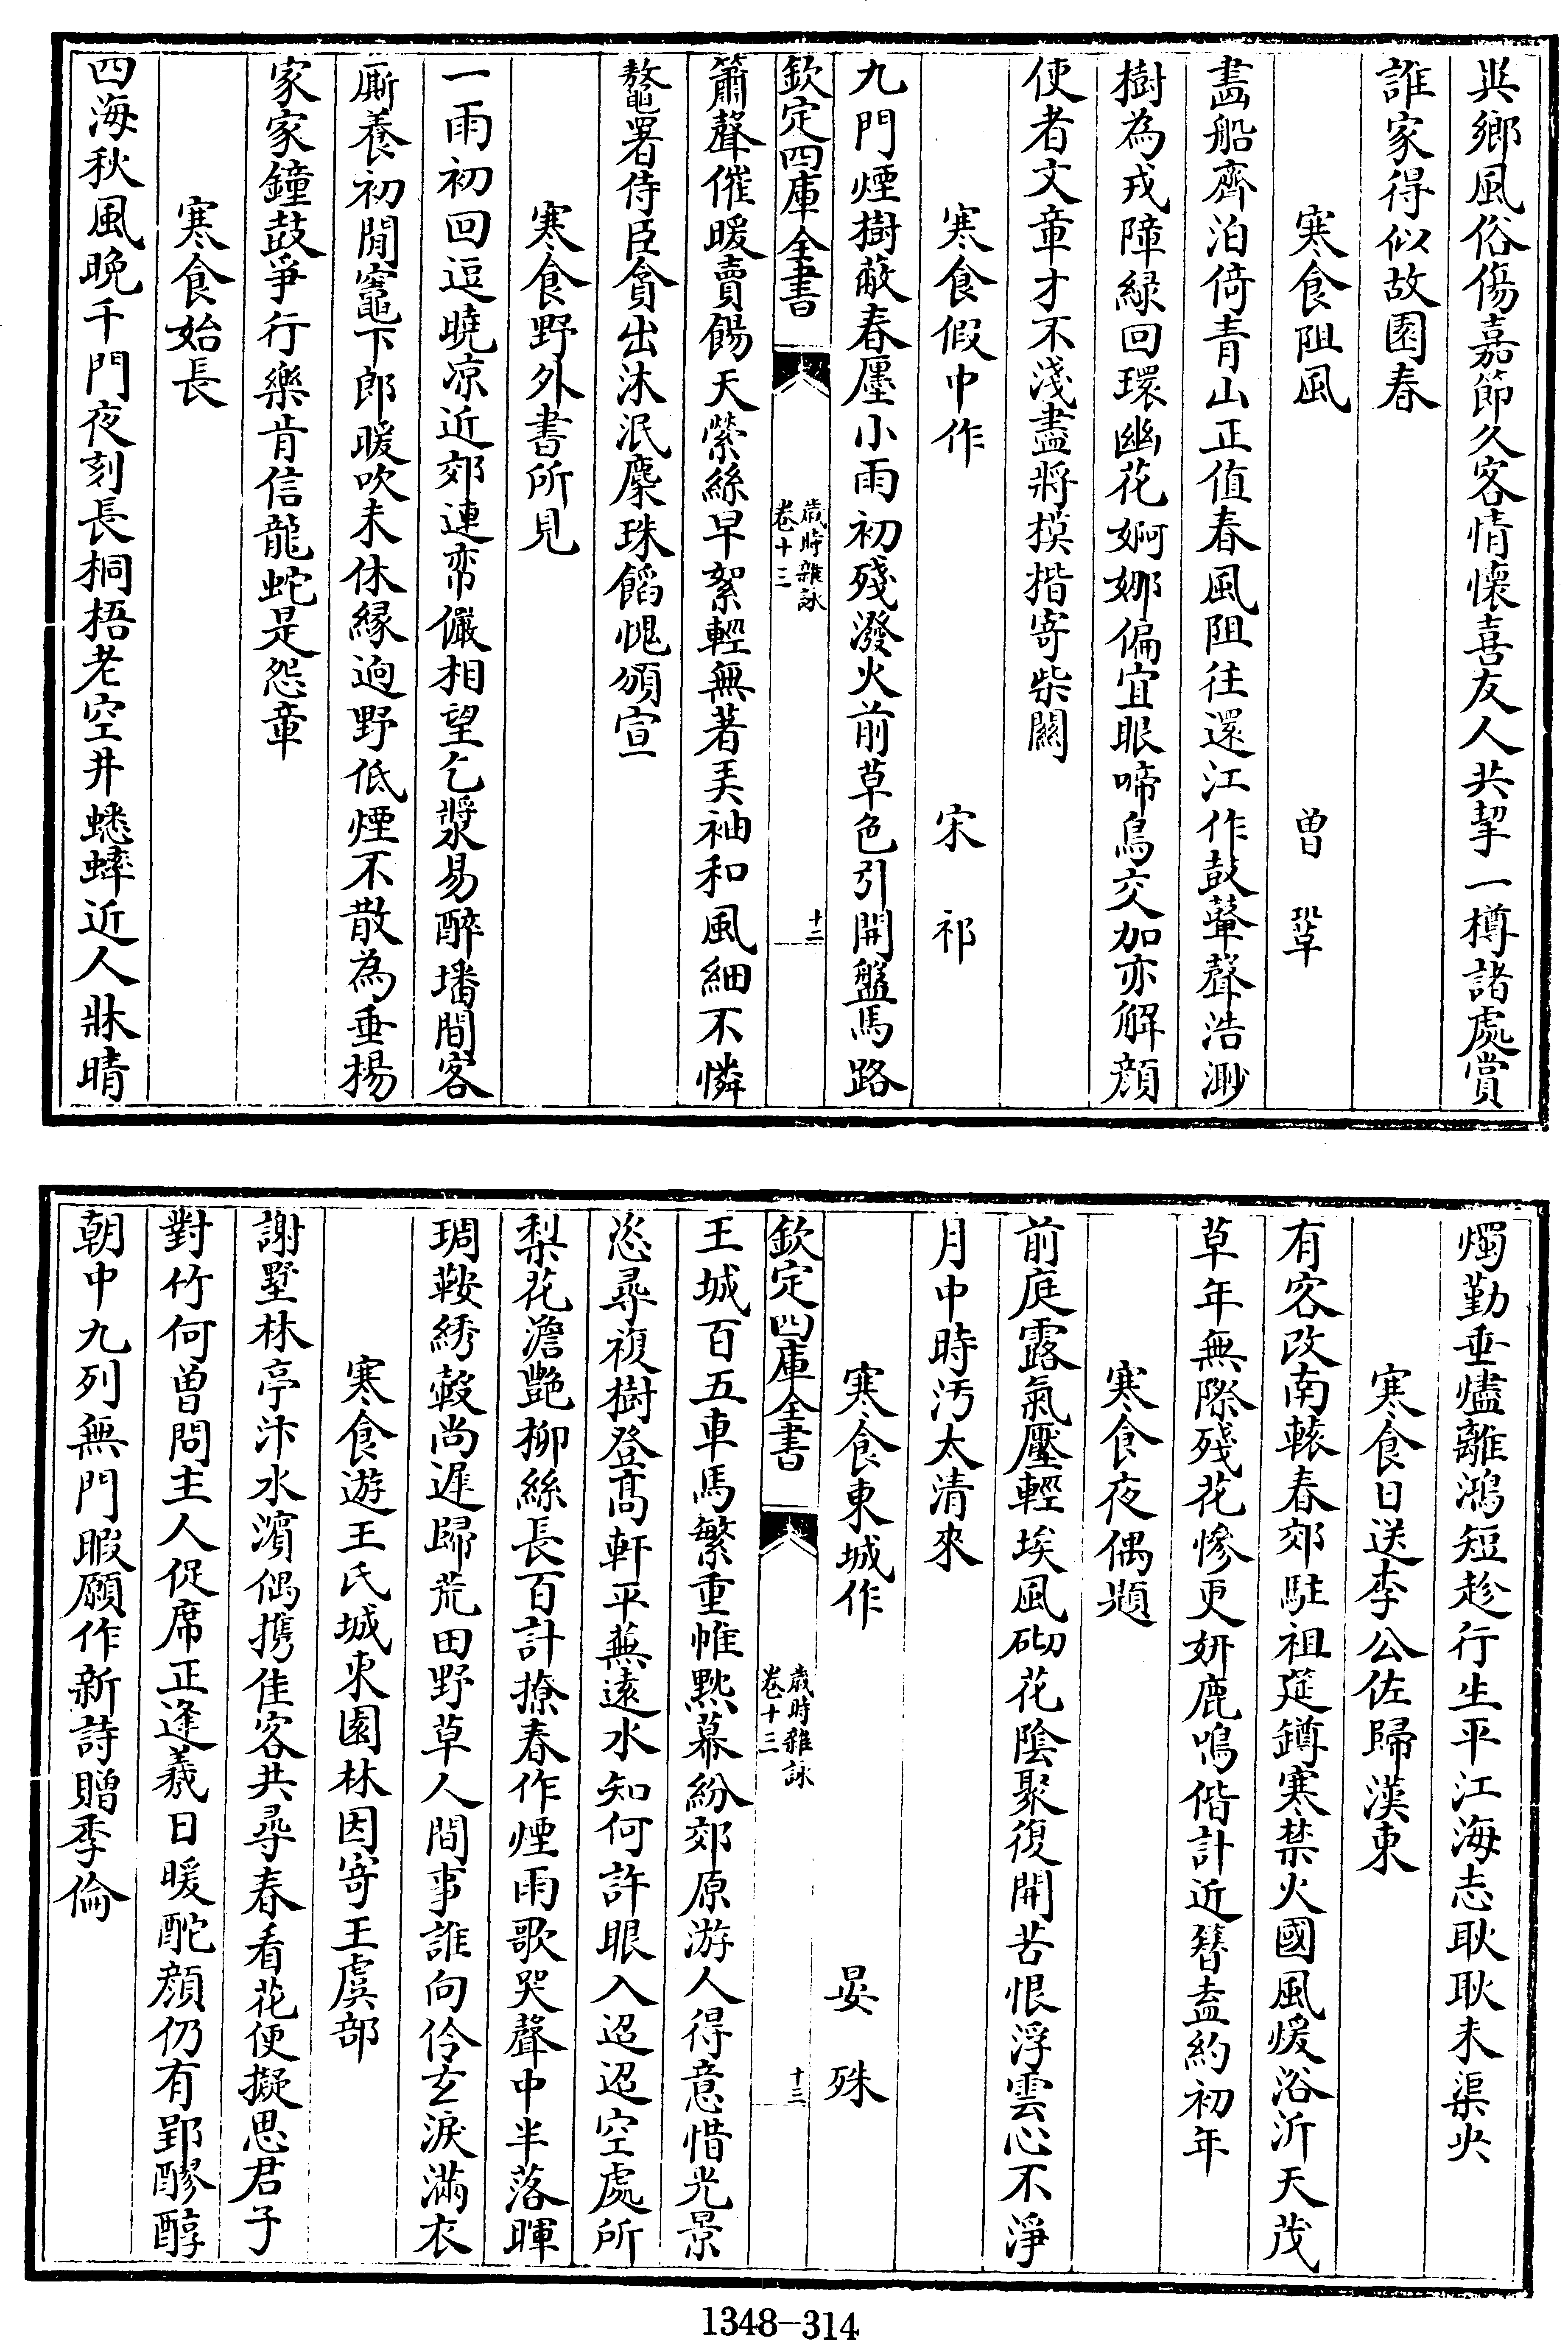 異鄉風俗傷嘉節久客情懷喜友人共挈一樽諸處賞
誰家得似故園春
寒食阻風 曾鞏
畵船齊泊倚青山正值春風阻往還江作鼓鼙聲浩渺
樹為戎障緑回環幽花婀娜偏宜眼啼鳥交加亦解顔
使者文章才不淺盡將模楷寄柴闗
寒食假中作 宋祁
九門煙樹蔽春廛小雨初殘潑火前草色引開盤馬路
欽定四庫全書
歲時雜詠
卷十三
十二
簫聲催暖賣餳天縈絲早絮輕無著美袖和風細不憐
鼇署侍臣貪出沐泯麋珠饀愧頒宣
寒食野外書所見
一雨初回逗曉凉近郊連帟儼相望乞漿易醉墦間客
厮養初閒竈下郎暖吹未休緣逈野低煙不散為垂楊
家家鐘鼓爭行樂肯信龍蛇是怨章
寒食始長
四海秋風晚千門夜刻長桐梧老空井蟋蟀近人牀晴
燭勤垂燼離鴻短趁行生平江海志耿耿未渠央
寒食日送李公佐歸漢東
有客改南轅春郊駐祖筵鐏寒禁火國風煖浴沂天茂
草年無際殘花慘更妍鹿鳴偕計近簪盍約初年
寒食夜偶題
前庭露氣壓輕埃風砌花陰聚復開苦恨浮雲心不淨
月中時汚太清來
寒食東城作 晏殊
欽定四庫全書
歲時雜詠
卷十三
十三
王城百五車馬繁重帷黙幕紛郊原游人得意惜光景
恣尋複樹登髙軒平蕪遠水知何許眼入迢迢空處所
梨花澹艶柳絲長百計撩春作煙雨歌哭聲中半落暉
琱鞍綉轂尚遲歸荒田野草人間事誰向伶玄淚滿衣
寒食遊王氏城東園林因寄王虞部
謝墅林亭汴水濱偶携佳客共尋春看花便擬思君子
對竹何曾問主人促席正逢羲日暖酡顔仍有郢醪醇
朝中九列無門暇願作新詩贈季倫
1348-314